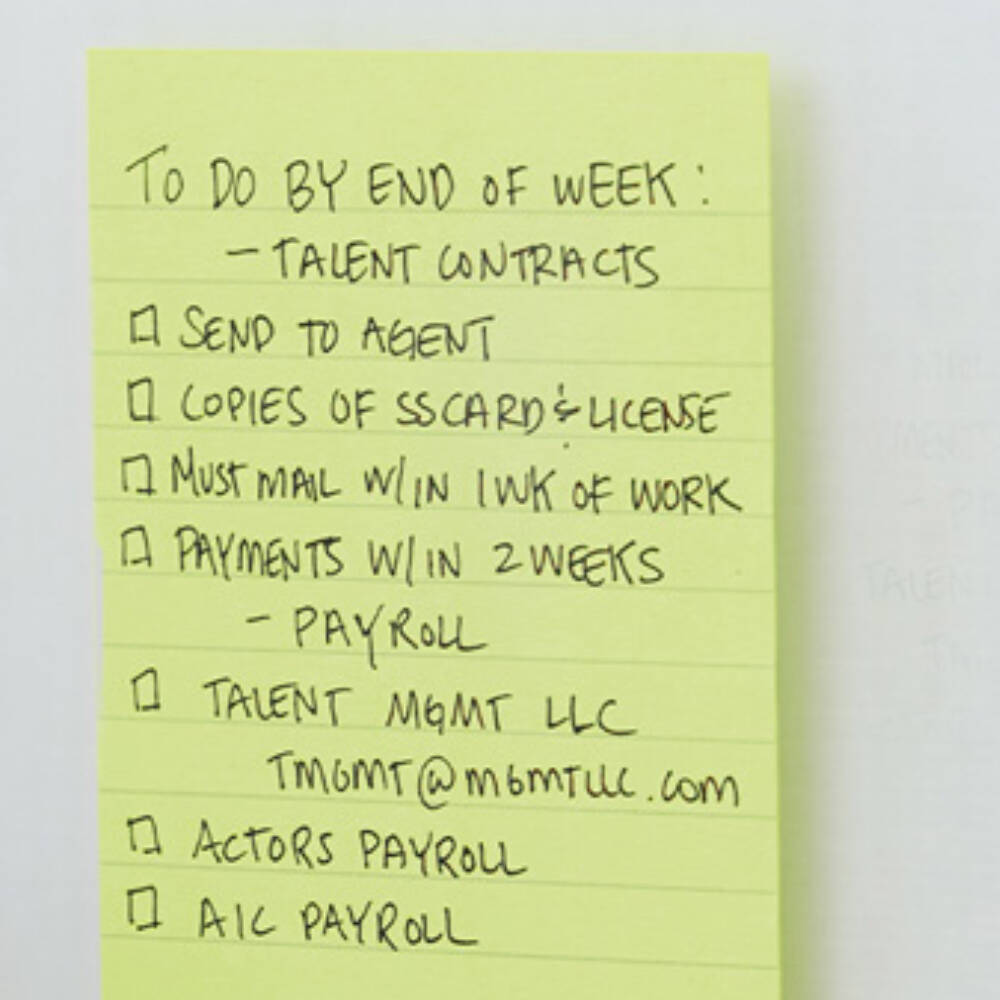 TO DO BY END OF WEEK:
- TALENT CONTRACTS
□ SEND TO AGENT
□ COPIES OF SS CARD & LICENSE
□ MUST MAIL W/IN 1 WK OF WORK
□ PAYMENTS W/IN 2 WEEKS
- PAYROLL
□ TALENT MGMT LLC
TMGMT@MGMTLLC.COM
□ ACTORS PAYROLL
□ AIC PAYROLL